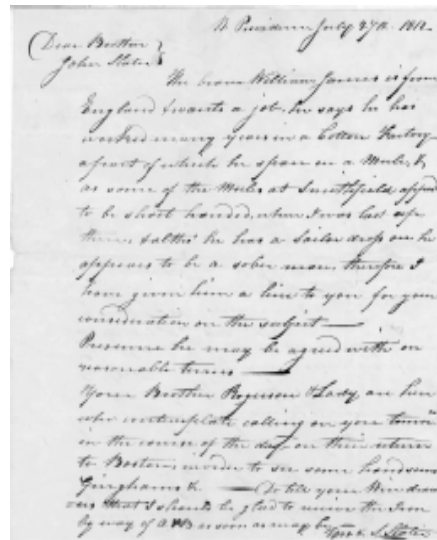 N. Providence July 27th. 1812.
Dear Brother
John Slater
The bearer William James is from
England & wants a job, he says he has
worked many years in a Cotton Factory
a part of which he span on a Mule, &
as some of the Mules at Smithfield appear'd
to be short handed, when I was last up
there, & altho' he has a Sailor dress on he
appears to be a sober man, therefore I
have given him a line to you for your
consideration on the subject
Presume he may be agreed with on
reasonable terms
Your Brother Rogerson & Lady are here
who contemplate calling on you
in the course of the day on their return
to Boston in order to see some handsome
Ginghams &
that I should be glad to receive the Iron
by way of as soon as may be
S. Slater